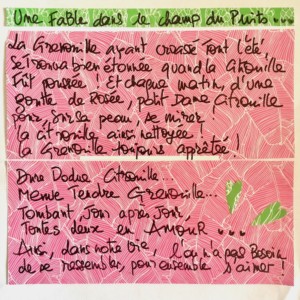 Une Fable dans le champ du Puits...
La Grenouille ayant creassé tout l'été
Se trouva bien étonnée quand la Citrouille
Fût poussée! Et chaque matin, d'une
goutte de Rosée, petit Dame Citrouille
pour, sur la peau, se mirer!
la citrouille ainsi nettoyée!
la Grenouille toujours apprêtée!
Dame Dodue Citrouille...
Menue Tendre Grenouille...
Tombant, Jour après Jour,
Toutes deux en AMOUR...
Ainsi, dans notre vie l'on n'a pas Besoin
de se ressembler, pour ensemble s'aimer!